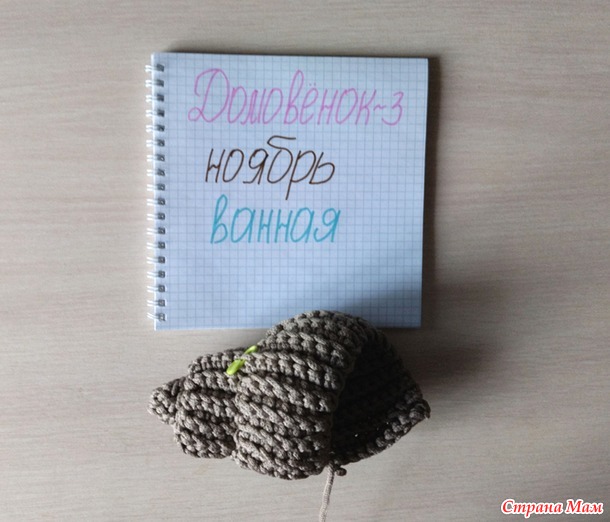 Домовёнок~3
ноябрь
ванная
Страна Мам